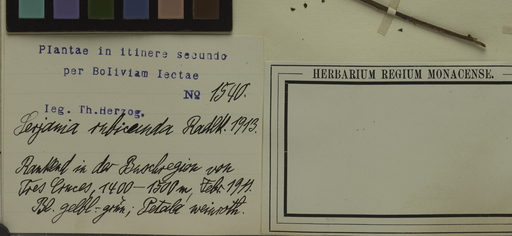 Plantae in itinere secundo
per Boliviam lectae
No 1540.
leg. Th. Herzog.
Serjania rubicunda Radlk. 1913.
Rankend in der Buschregion von
Tres Cruces, 1400–1500 m, Febr. 1911.
Bl. gelbl.-grün; Petala weinroth.
HERBARIUM REGIUM MONACENSE.